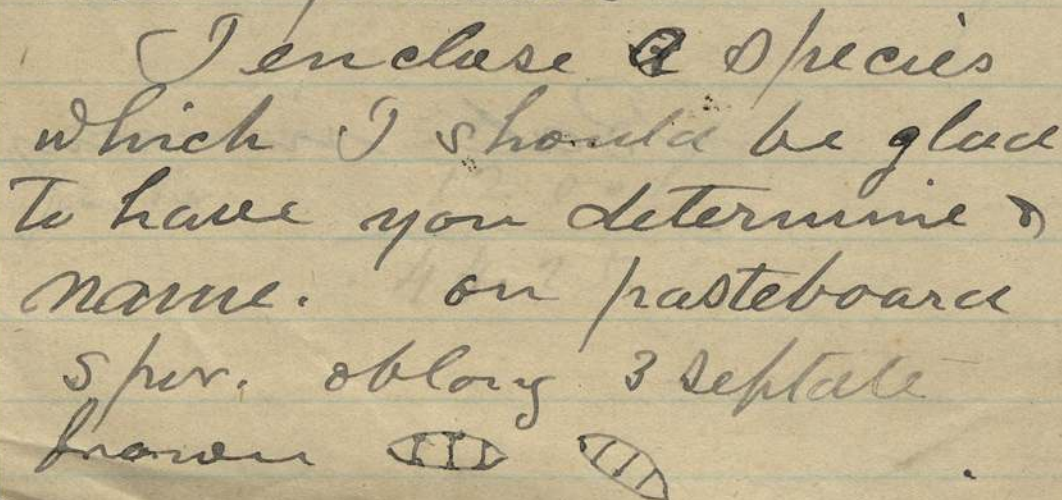 I enclose a species
which I should be glad
to have you determine &
name. on pasteboard
spor. oblong 3 septate
brown